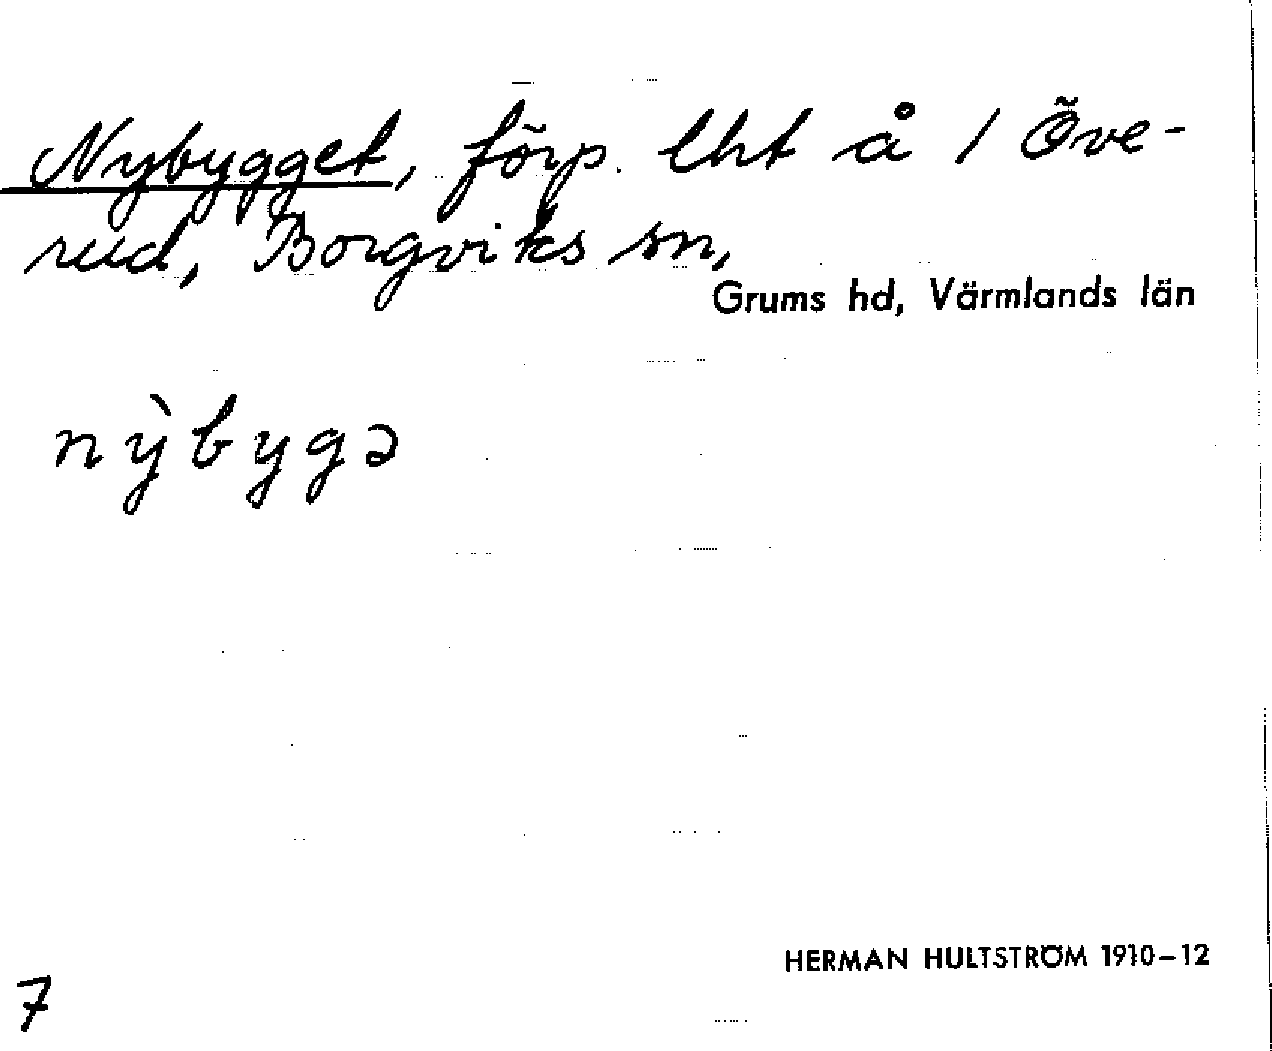 Nybygget, förp. lht å 1 Öve-
rud, Borgviks sn,
Grums hd, Värmlands län
nỳbygə
HERMAN HULTSTRÖM 1910-12
7